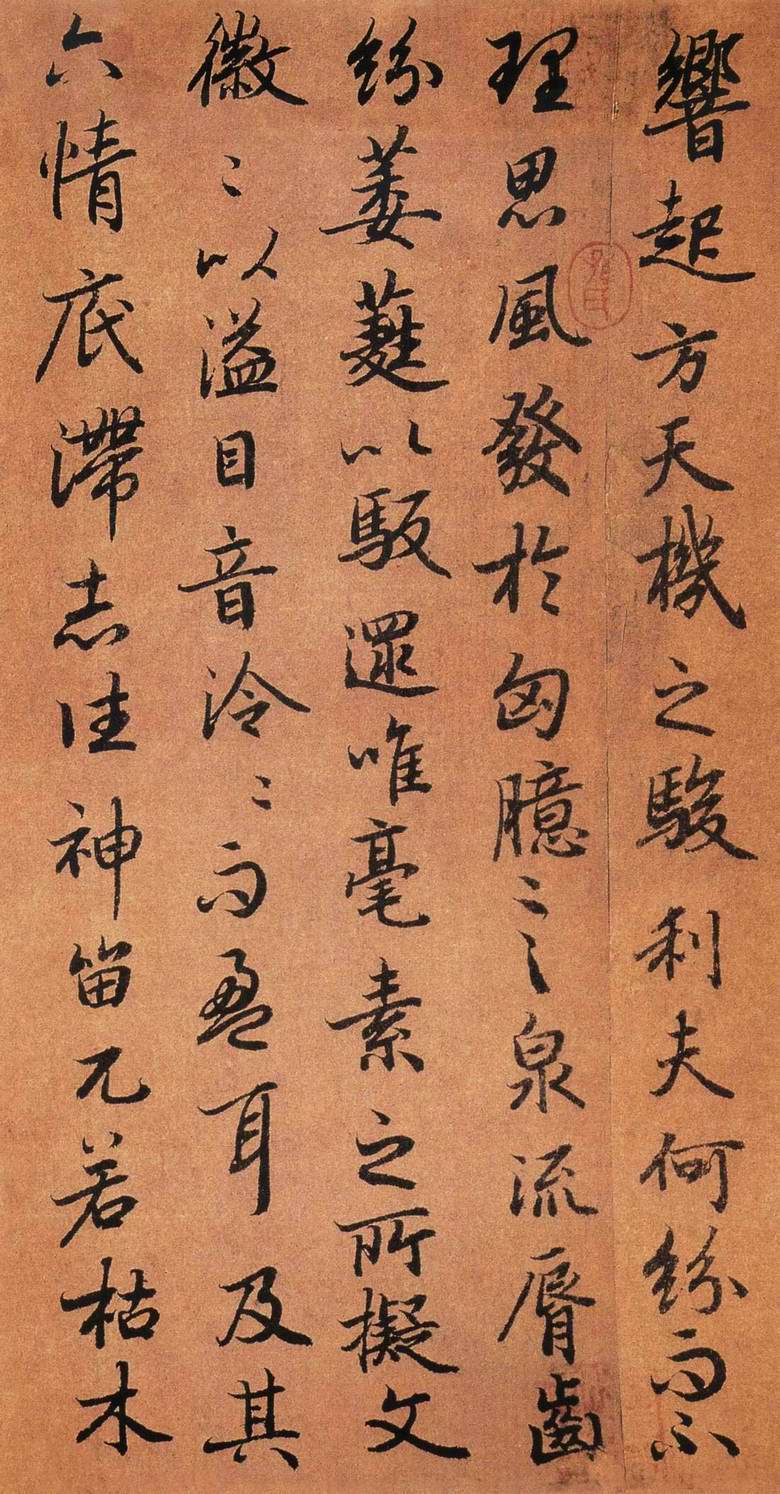 響起方天機之駿利夫何紛而不
理思風發於匈臆言泉流脣齒
紛葳蕤以馺遝唯毫素之所擬文
徽〻以溢目音泠〻而盈耳及其
六情底滯志往神留兀若枯木